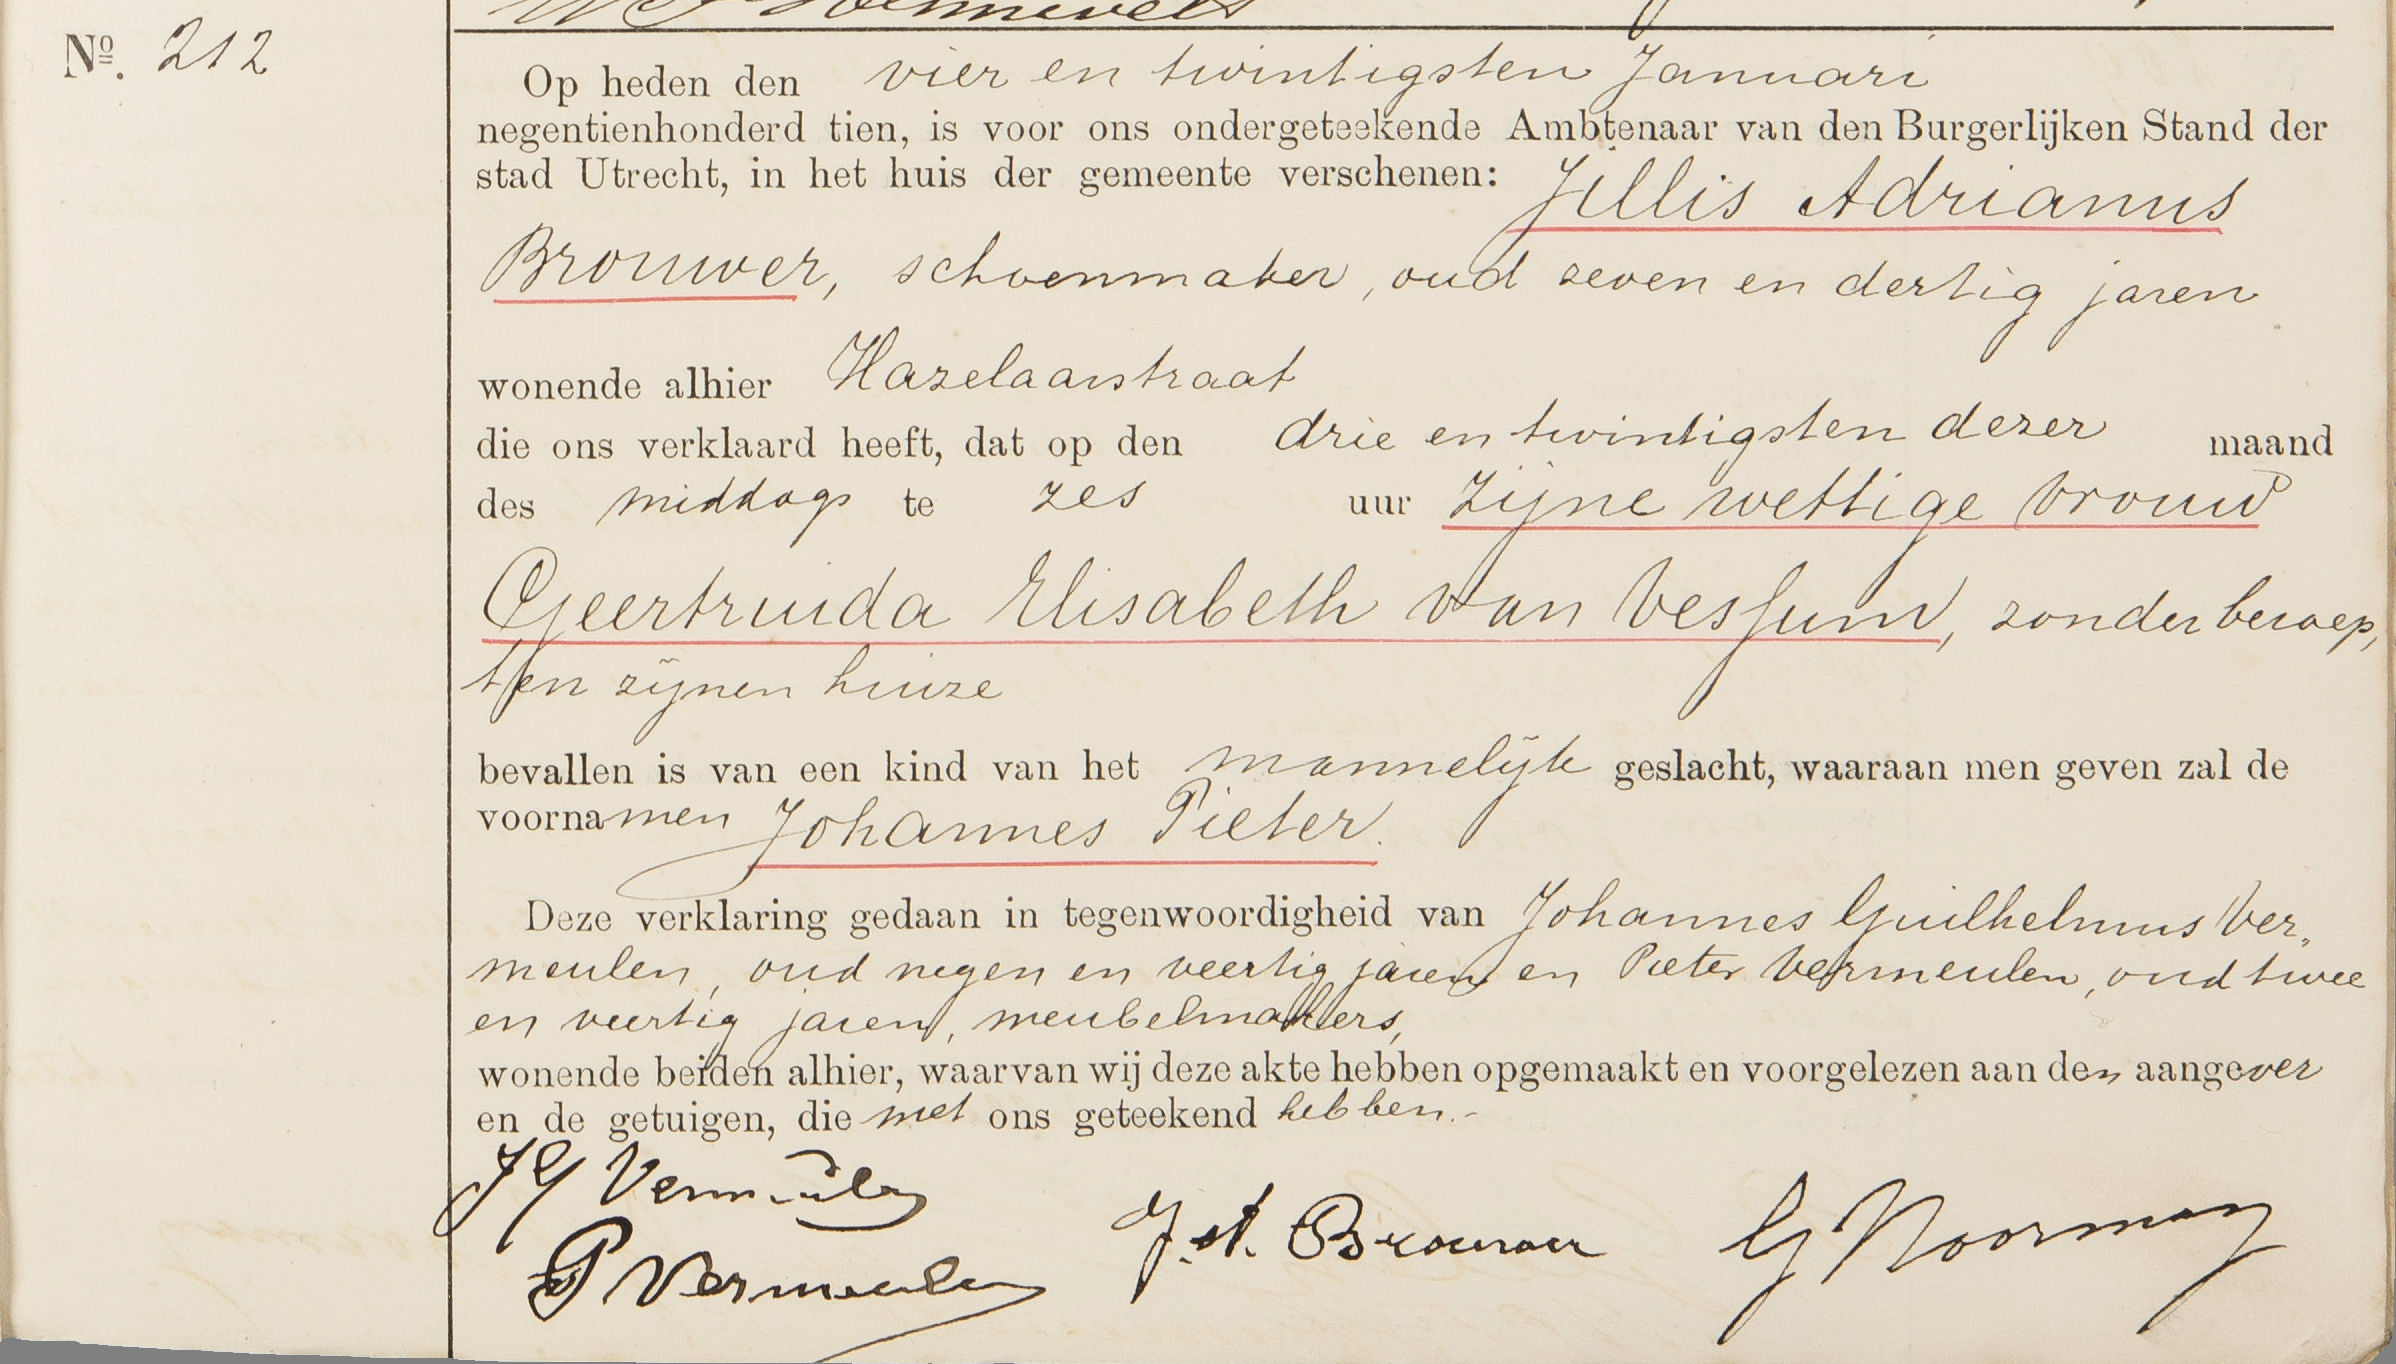 Nº. 212
Op heden den vier en twintigsten Januari
negentienhonderd tien, is voor ons ondergeteekende Ambtenaar van den Burgerlijken Stand der
stad Utrecht, in het huis der gemeente verschenen: Jillis Adrianus
Brouwer, schoenmaker, oud zeven en dertig jaren
wonende alhier Hazelaarstraat
die ons verklaard heeft, dat op den drie en twintigsten dezer maand
des middags te zes uur zijne wettige vrouw
Geertruida Elisabeth van Vessum, zonder beroep,
ten zijnen huize
bevallen is van een kind van het mannelijk geslacht, waaraan men geven zal de
voornamen Johannes Pieter.
Deze verklaring gedaan in tegenwoordigheid van Johannes Guilhelmus Ver„
meulen, oud negen en veertig jaren en Pieter Vermeulen, oud twee
en veertig jaren, meubelmakers,
wonende beiden alhier, waarvan wij deze akte hebben opgemaakt en voorgelezen aan den aangever
en de getuigen, die met ons geteekend hebben.-
J G Vermeulen
P Vermeulen
J. A. Brouwer
G Noorman